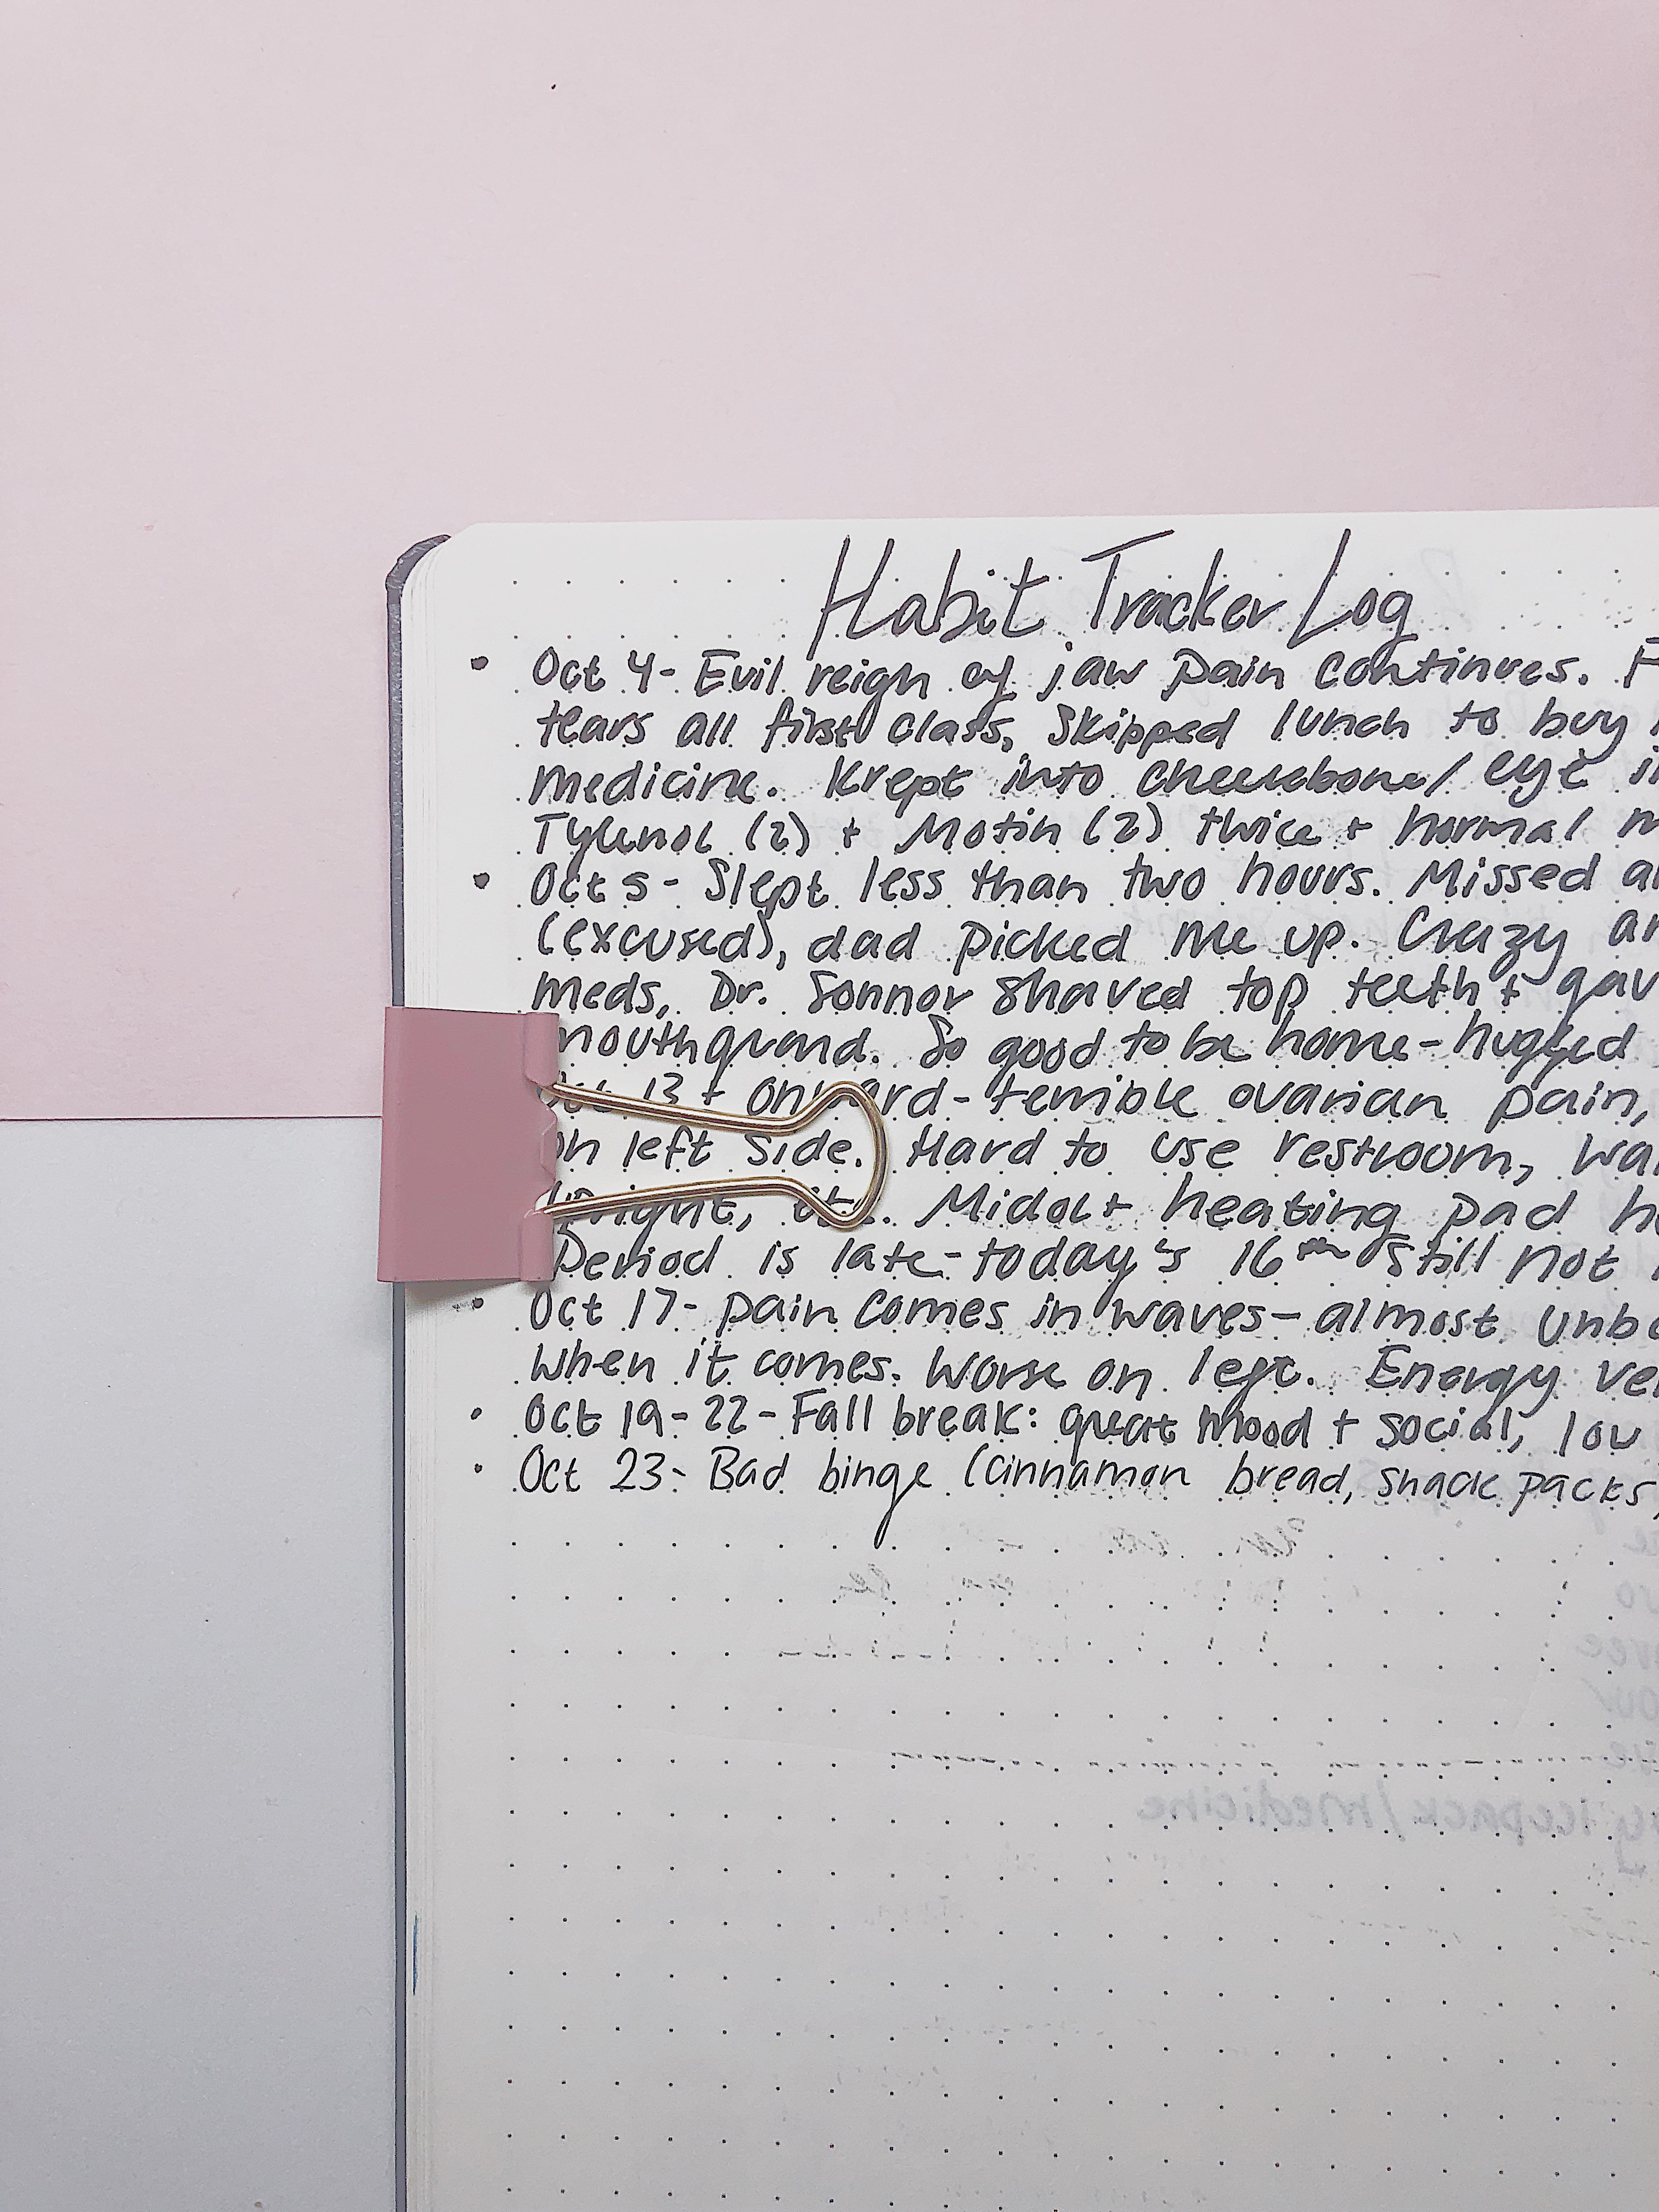 Habit Tracker Log
• Oct 4- Evil reign of jaw pain continues. F
tears all first class, skipped lunch to buy
medicine. Krept into cheekbone/eye i
Tylenol (2) + Motin (2) twice + normal m
• Oct 5- Slept less than two hours. Missed a
(excused), dad picked me up. Crazy a
meds, Dr. Sonnor shaved top teeth + gav
mouthguard. So good to be home-hugged
Oct 13 + onward- terrible ovarian pain,
on left side. Hard to use restroom, wa
upright, etc. Midol + heating pad h
Period is late-today's 16th still not
• Oct 17- pain comes in waves- almost unb
when it comes. Worse on left. Energy ve
• Oct 19-22- Fall break: great mood + social, lou
• Oct 23- Bad binge (cinnamon bread, snack packs,
icepack/medicine